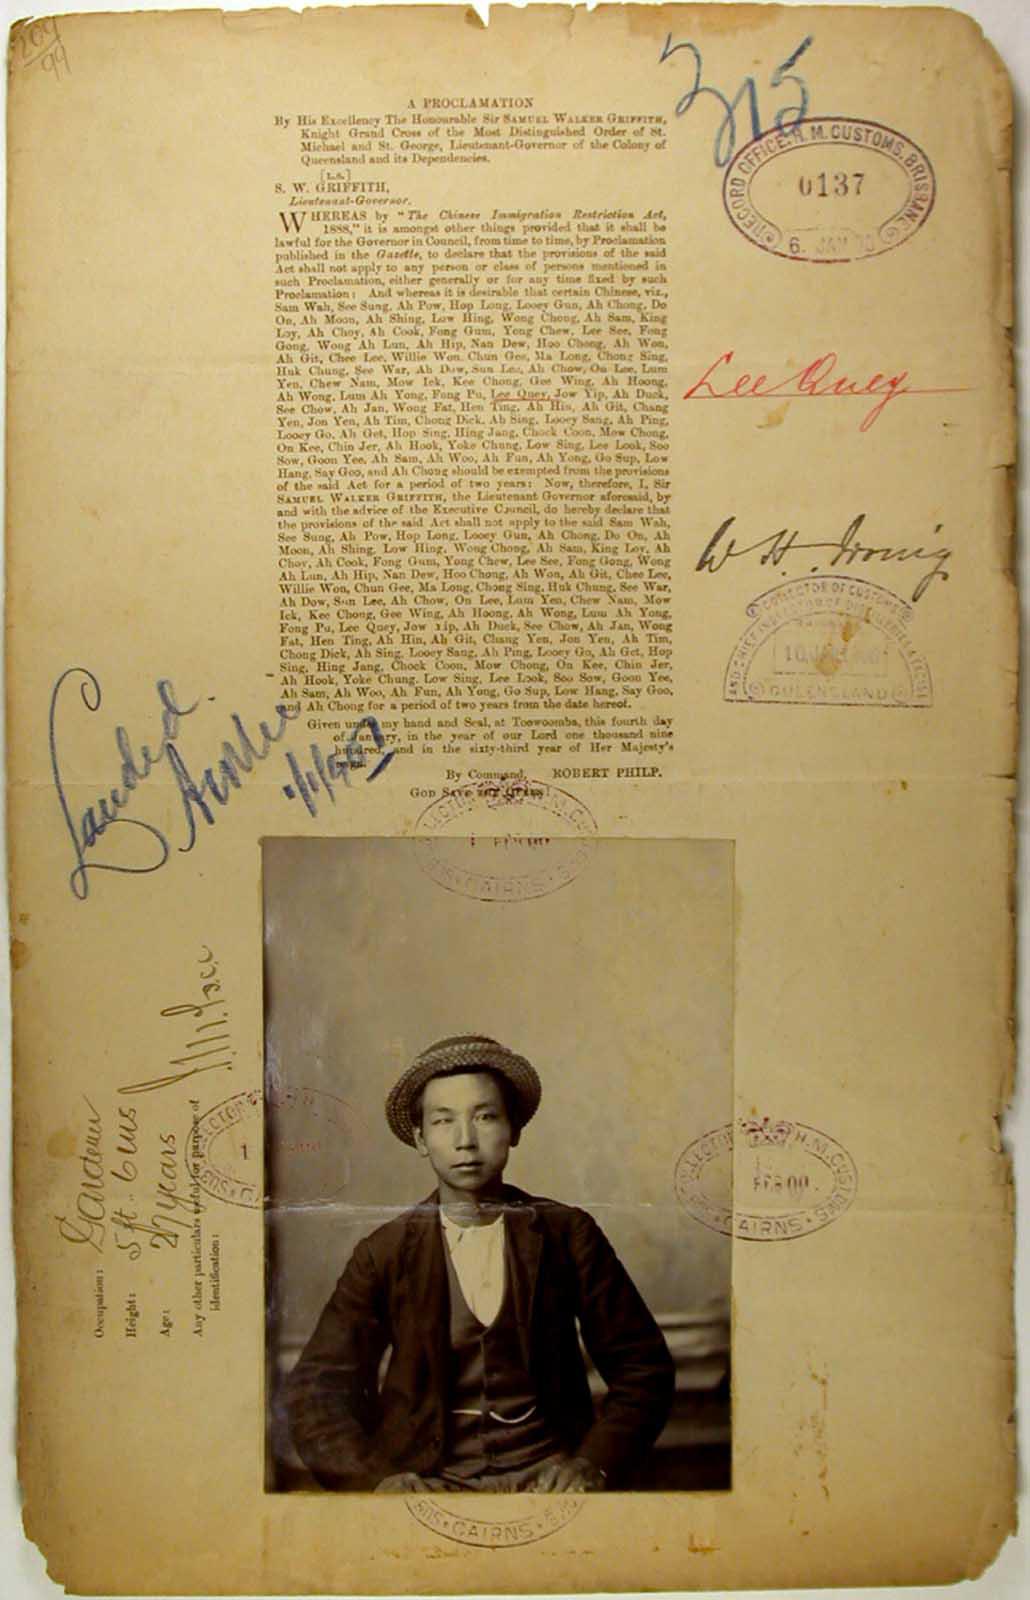 209
99
315
RECORD OFFICE. H. M. CUSTOMS. BRISBANE
0137
6. JAN
A PROCLAMATION
By His Excellency The Honourable Sir SAMUEL WALKER GRIFFITH,
Knight Grand Cross of the Most Distinguished Order of St.
Michael and St. George, Lieutenant-Governor of the Colony of
Queensland and its Dependencies.
[L.S.]
S. W. GRIFFITH,
Lieutenant-Governor.
WHEREAS by "The Chinese Immigration Restriction Act,
1888," it is amongst other things provided that it shall be
lawful for the Governor in Council, from time to time, by Proclamation
published in the Gazette, to declare that the provisions of the said
Act shall not apply to any person or class of persons mentioned in
such Proclamation, either generally or for any time fixed by such
Proclamation: And whereas it is desirable that certain Chinese, viz.,
Sam Wah, See Sung, Ah Pow, Hop Long, Looey Gun, Ah Chong, Do
On, Ah Moon, Ah Shing, Low Hing, Wong Chong, Ah Sam, King
Loy, Ah Choy, Ah Cook, Fong Gum, Yong Chew, Lee See, Fong
Gong, Wong Ah Lun, Ah Hip, Nan Dew, Hoo Chong, Ah Won,
Ah Git, Chee Lee, Willie Won, Chun Gee, Ma Long, Chong Sing,
Huk Chung, See War, Ah Dow, Sun Lee, Ah Chow, On Lee, Lum
Yen, Chew Nam, Mow Ick, Kee Chong, Gee Wing, Ah Hoong,
Ah Wong, Lum Ah Yong, Fong Pu, Lee Quey, Jow Yip, Ah Duck,
See Chow, Ah Jan, Wong Fat, Hen Ting, Ah Hin, Ah Git, Chang
Yen, Jon Yen, Ah Tim, Chong Dick, Ah Sing, Looey Sang, Ah Ping,
Looey Go, Ah Get, Hop Sing, Hing Jang, Chock Coon, Mow Chong,
On Kee, Chin Jer, Ah Hook, Yoke Chung, Low Sing, Lee Look, Soo
Sow, Goon Yee, Ah Sam, Ah Woo, Ah Fun, Ah Yong, Go Sup, Low
Hang, Say Goo, and Ah Chong should be exempted from the provisions
of the said Act for a period of two years: Now, therefore, I, Sir
SAMUEL WALKER GRIFFITH, the Lieutenant Governor aforesaid, by
and with the advice of the Executive Council, do hereby declare that
the provisions of the said Act shall not apply to the said Sam Wah,
See Sung, Ah Pow, Hop Long, Looey Gun, Ah Chong, Do On, Ah
Moon, Ah Shing, Low Hing, Wong Chong, Ah Sam, King Loy, Ah
Choy, Ah Cook, Fong Gum, Yong Chew, Lee See, Fong Gong, Wong
Ah Lun, Ah Hip, Nan Dew, Hoo Chong, Ah Won, Ah Git, Chee Lee,
Willie Won, Chun Gee, Ma Long, Chong Sing, Huk Chung, See War,
Ah Dow, Sun Lee, Ah Chow, On Lee, Lum Yen, Chew Nam, Mow
Ick, Kee Chong, Gee Wing, Ah Hoong, Ah Wong, Lum Ah Yong,
Fong Pu, Lee Quey, Jow Yip, Ah Duck, See Chow, Ah Jan, Wong
Fat, Hen Ting, Ah Hin, Ah Git, Chang Yen, Jon Yen, Ah Tim,
Chong Dick, Ah Sing, Looey Sang, Ah Ping, Looey Go, Ah Get, Hop
Sing, Hing Jang, Chock Coon, Mow Chong, On Kee, Chin Jer,
Ah Hook, Yoke Chung, Low Sing, Lee Look, Soo Sow, Goon Yee,
Ah Sam, Ah Woo, Ah Fun, Ah Yong, Go Sup, Low Hang, Say Goo,
and Ah Chong for a period of two years from the date hereof.
Given under my hand and Seal, at Toowoomba, this fourth day
of January, in the year of our Lord one thousand nine
hundred, and in the sixty-third year of Her Majesty's
reign.
By Command, ROBERT PHILP.
GOD SAVE THE QUEEN!
Lee Quey
W H Irving
COLLECTOR OF CUSTOMS
QUEENSLAND
Landed
COLLECTOR H. M. CUSTOMS
CAIRNS
Occupation: Gardener
Height: 5ft. 6ins
Age: 27 years
Any other particulars useful for purpose of
identification:
COLLECTOR H. M. CUSTOMS
FEB 00
CAIRNS
CAIRNS